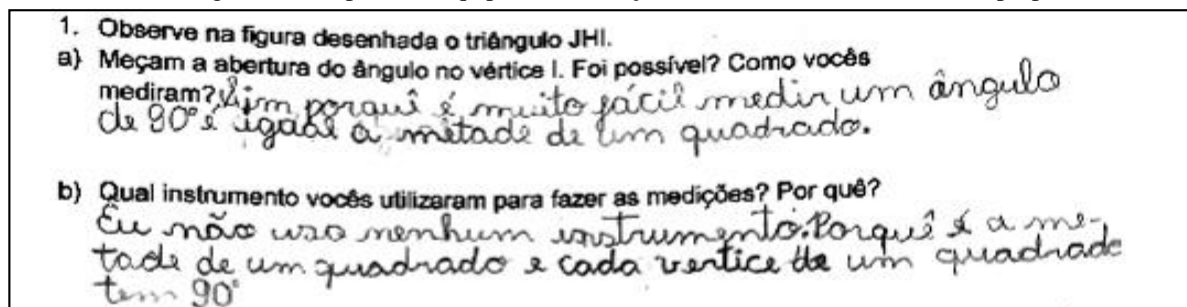 1. Observe na figura desenhada o triângulo JHI.
a) Meçam a abertura do ângulo no vértice I. Foi possível? Como vocês
mediram? Sim porquê é muito fácil medir um ângulo
de 90° é igual a metade de um quadrado.
b) Qual instrumento vocês utilizaram para fazer as medições? Por quê?
Eu não uso nenhum instrumento. Porquê é a me-
tade de um quadrado e cada vertice de um quadrado
tem 90°